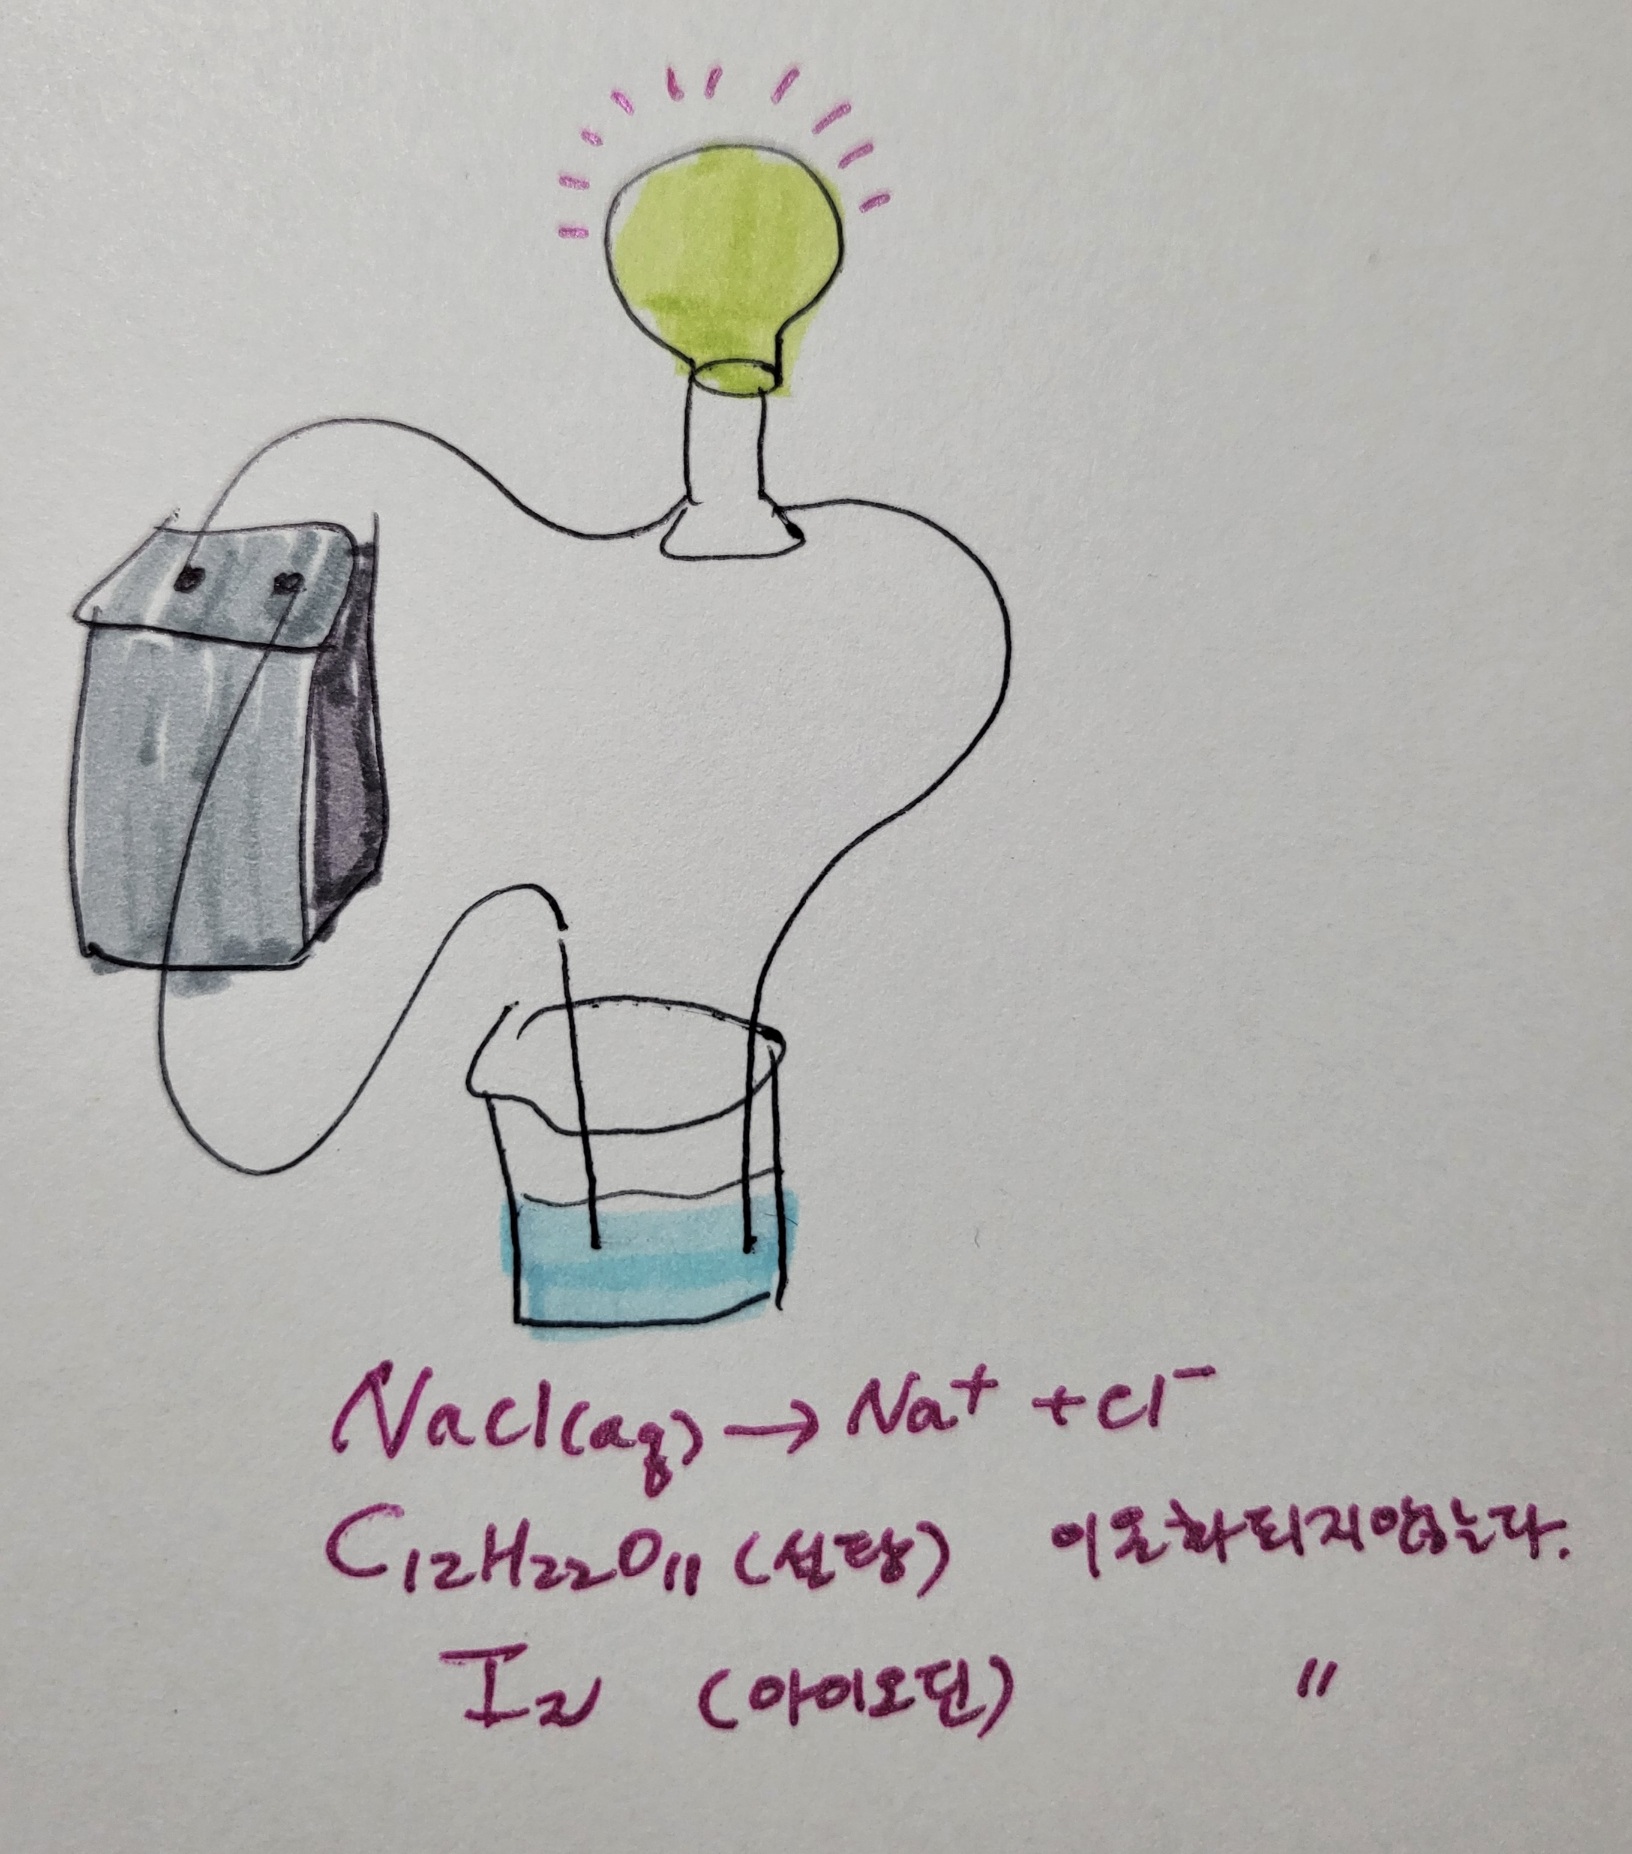 NaCl(aq) → Na⁺ + Cl⁻
C₁₂H₂₂O₁₁ (설탕) 이온화되지않는다.
I₂ (아이오딘) "